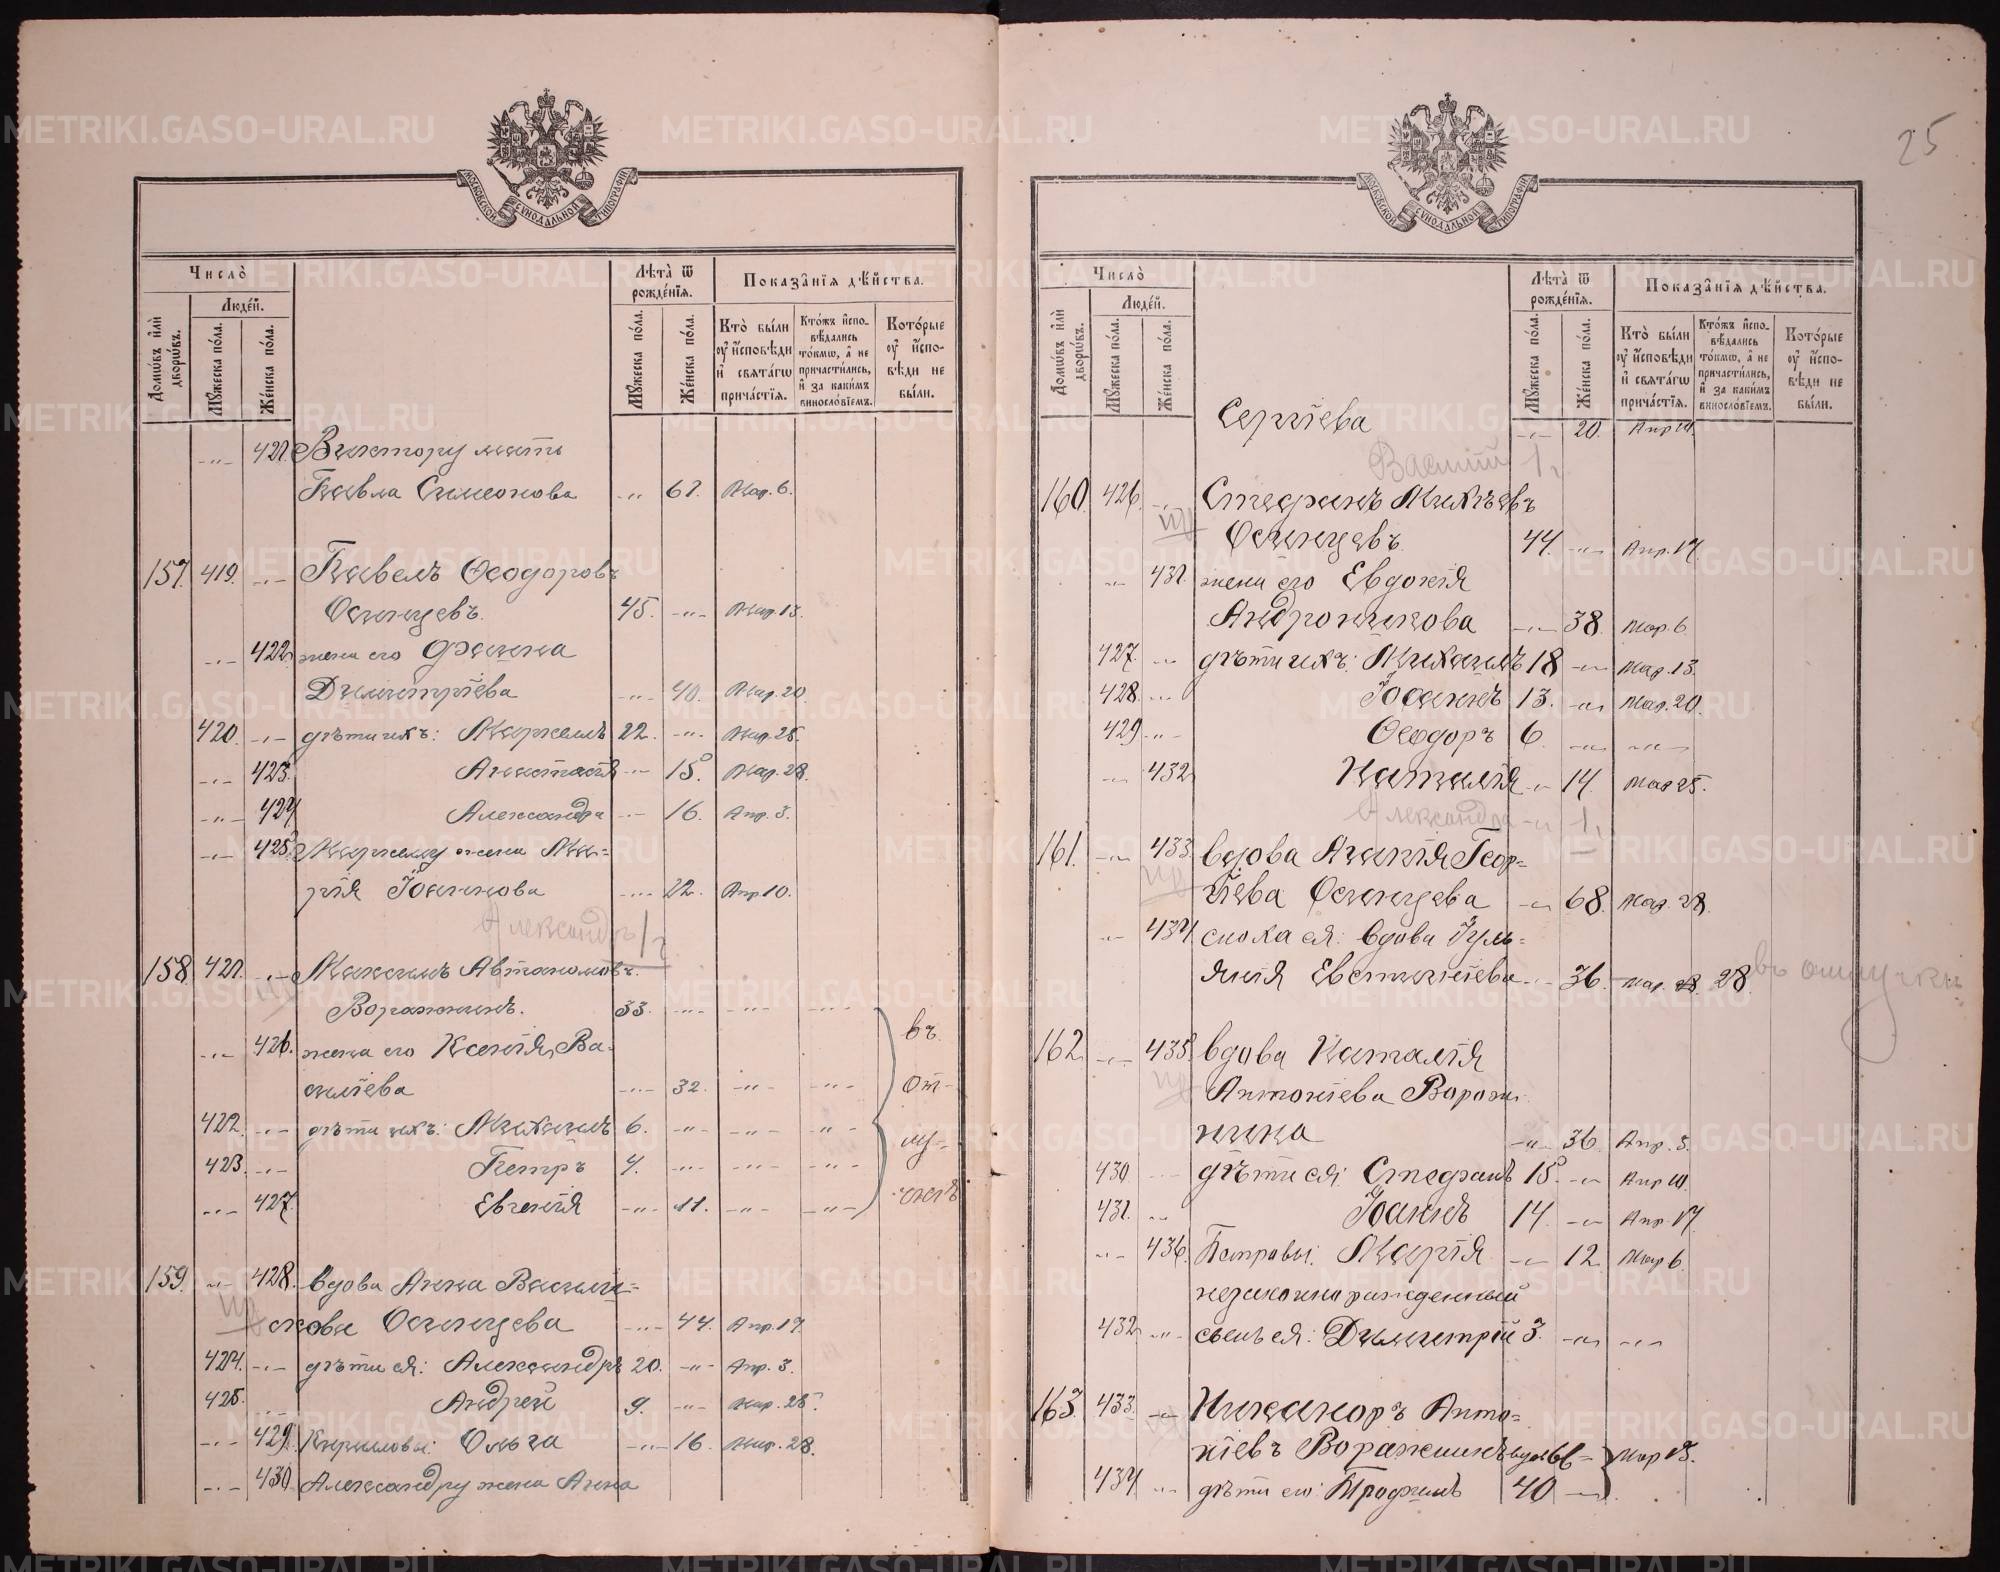 25
МОСКОВСКОЙ СѴНОДАЛЬНОЙ ТИПОГРАФІИ
Число̀
Людéй.
Домѡвъ и҆лѝ дворѡвъ.
Мꙋжеска по́ла.
Же́нска по́ла.
Лѣта̀ ѿ рожде́нїѧ.
Мꙋжеска по́ла.
Же́нска по́ла.
Показа̑нїѧ дѣ́йства.
Кто̀ бы́ли оу҆ и҆сповѣди и҆ свѧта́гѡ прича́стїѧ.
Кто́жъ и҆спо- вѣдались то́кмѡ, а҆ не причасти́лись, и҆ за каки́мъ винослóвїемъ.
Кото́рые оу҆ и҆спо- вѣди не бы́ли.
-"- 421 Виктору мать
Павла Симеонова -"- 67. Мар. 6.
157. 419. -"- Павелъ Ѳеодоровъ
Осинцевъ. 45. -"- Мар. 13.
-"- 422 жена его Фаина
Димитріева -"- 40. Мар. 20
420. -"- дѣти ихъ: Маркелъ 22. -"- Мар. 25.
-"- 423. Анастасія -"- 18. Мар. 28.
-"- 424 Александра -"- 16. Апр. 3.
-"- 425. Маркелу жена Ма-
рія Іоаннова -"- 22. Апр 10.
Александръ 1 г
158. 421. -"- Максимъ Автономовъ.
Воражнинъ. 33. -"- -"- -"- въ
-"- 426. жена его Ксенія Ва-
силіева -"- 32. -"- -"- от-
422. -"- дѣти ихъ: Михаилъ 6. -"- -"- -"- лу-
423. -"- Петръ 4. -"- -"- -"-
-"- 427. Евгенія -"- 11. -"- -"- -чкѣ
159. -"- 428. вдова Анна Василь-
кова Осинцева -"- 44. Апр. 17.
424. -"- дѣти ея: Александръ 20. -"- Апр. 3.
425. Андрей 9. -"- Мар. 25.
-"- 429. Кириловы: Ольга -"- 16. Мар. 28.
-"- 430 Александру жена Анна
Число̀
Людéй.
Домѡвъ и҆лѝ дворѡвъ.
Мꙋжеска по́ла.
Же́нска по́ла.
Лѣта̀ ѿ рожде́нїѧ.
Мꙋжеска по́ла.
Же́нска по́ла.
Показа̑нїѧ дѣ́йства.
Кто̀ бы́ли оу҆ и҆сповѣди и҆ свѧта́гѡ прича́стїѧ.
Кто́жъ и҆спо- вѣдались то́кмѡ, а҆ не причасти́лись, и҆ за каки́мъ винослóвїемъ.
Кото́рые оу҆ и҆спо- вѣди не бы́ли.
Сергіева -"- 20. Апр 10.
Василій 1 г.
160. 426. -"- Стефанъ Михѣевъ
Осинцевъ 44. -"- Апр. 17.
-"- 431. жена его Евдокія
Андроникова -"- 38. Мар. 6.
427. -"- дѣти ихъ: Михаилъ 18 -"- Мар. 13.
428. -"- Іоаннъ 13. -"- Мар. 20.
429 -"- Ѳеодоръ 6. -"- -"-
-"- 432 Наталія -"- 14. Мар 25.
Александра -"- 1.
161. -"- 433. вдова Агапія Геор-
гіева Осинцева -"- 68. Мар. 28.
-"- 434 сноха ея: вдова Іуль-
янія Евстигніева -"- 36. Мар. 28. 28. въ отлучкѣ
162. -"- 435. вдова Наталія
Антоніева Вораж-
нина -"- 36. Апр. 3.
430 -"- дѣти ея: Стефанъ 15. -"- Апр 10.
431. -"- Іоаннъ 14. -"- Апр. 17.
-"- 436. Петровы: Марія -"- 12. Мар 6.
незаконнорожденный
432 -"- сынъ ея: Димитрій 3. -"- -"-
163. 433. -"- Никаноръ Анто-
ніевъ Воражнинъ вдов 66 -"- Мар 13.
434 -"- дѣти его: Трофимъ 40 -"-
METRIKI.GASO-URAL.RU